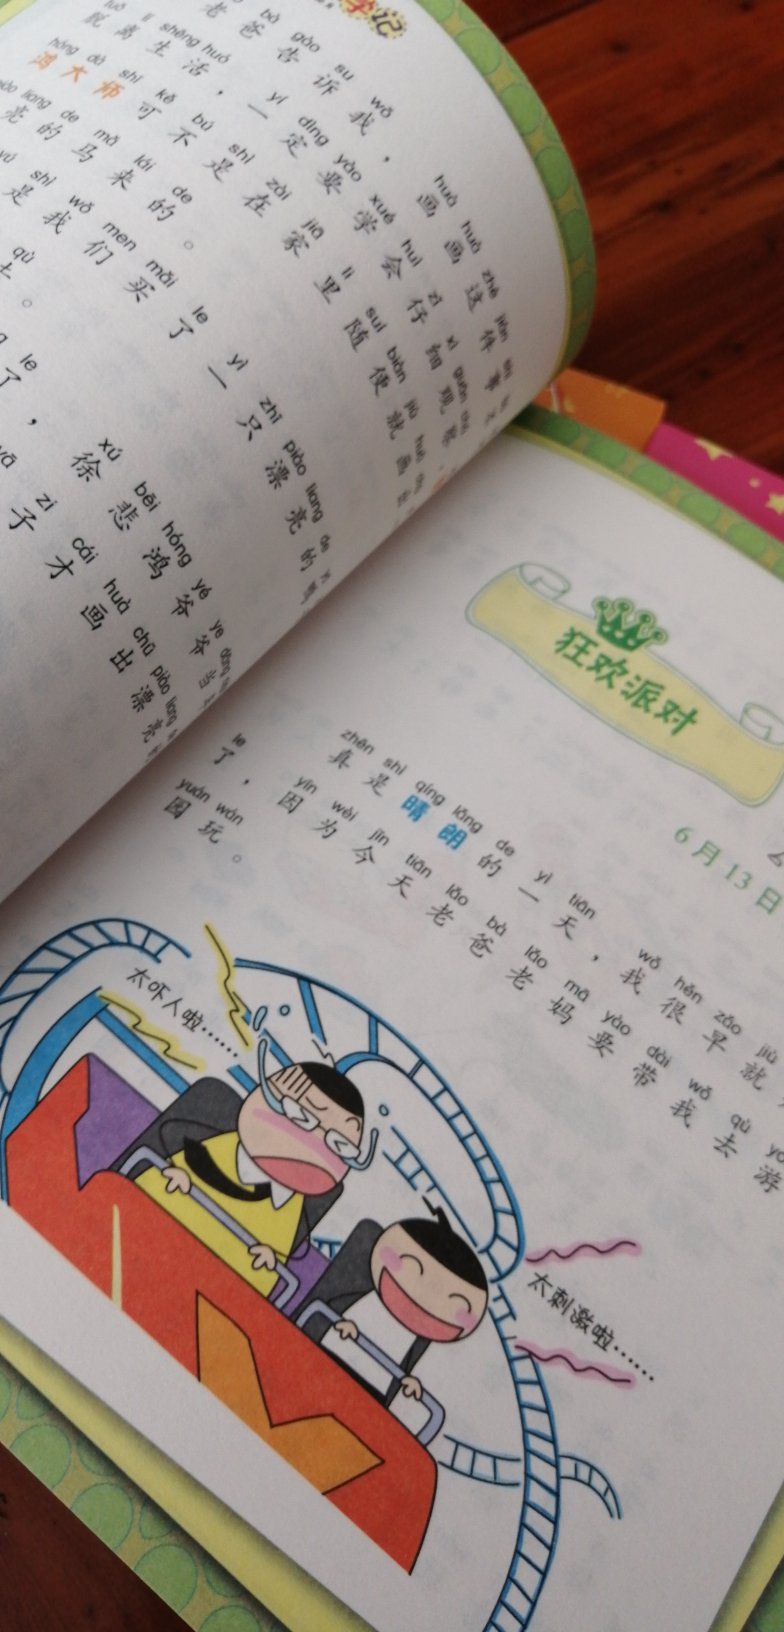 学记
bà gào su wǒ huà huà zhè jiàn
老爸告诉我，画画这件事不
luò lí shēng huó yí dìng yào xué huì zǐ xì guān
脱离生活，一定要学会仔细观察，
hóng dà shī kě bú shì zài jiā li suí biàn jiù huà
鸿大师可不是在家里随便就画出
liang de mǎ lái de
亮的马来的。
shì wǒ men mǎi le yì zhī piào liang de
是我们买了一只漂亮的
qù
去。
le xú bēi hóng yé ye dāng
了，徐悲鸿爷爷当
zi cái huà chū piào liang
子才画出漂亮的
狂欢派对
6月13日
zhēn shì qíng lǎng de yì tiān wǒ hěn zǎo jiù
真是晴朗的一天，我很早就
le yīn wèi jīn tiān lǎo bà lǎo mā yào dài wǒ qù
了，因为今天老爸老妈要带我去游
yuán wán
园玩。
太吓人啦……
太刺激啦……